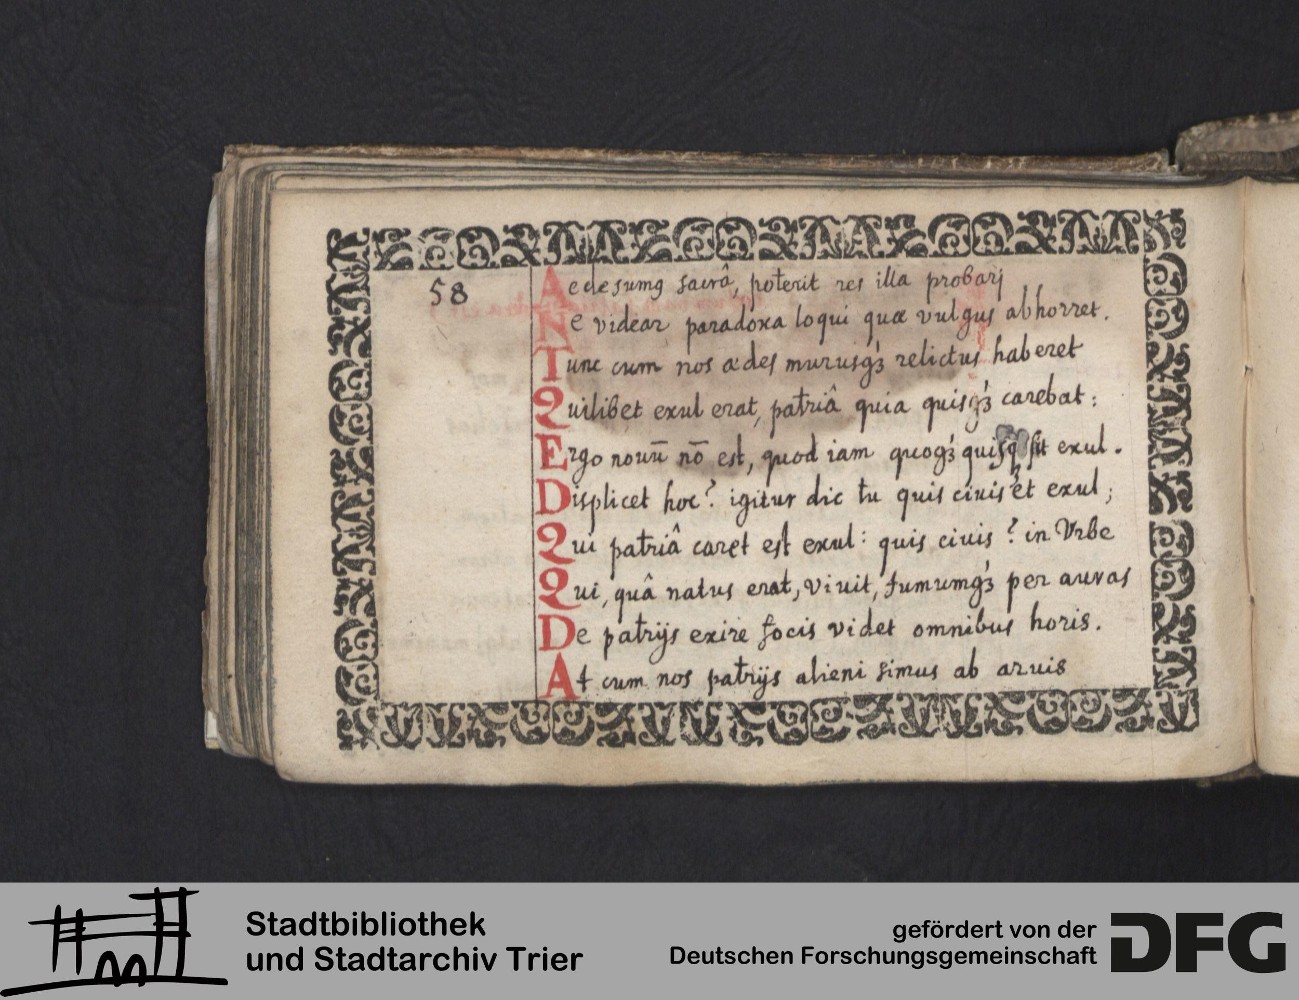 58
Aedesumq sacrâ, poterit res illa probarj
Ne videar paradoxa loqui quæ vulgus abhorret.
Tunc cum nos ædes murusqʒ relictus haberet
Quilibet exul erat, patriâ quia quisqʒ carebat:
Ergo nouū nō est, quod iam quoqʒ quisq sit exul.
Displicet hoc? igitur dic tu quis ciuis et exul;
Qui patriâ caret est exul: quis ciuis? in Vrbe
Qui, quâ natus erat, viuit, fumumqʒ per auras
De patrijs exire focis videt omnibus horis.
At cum nos patrijs alieni simus ab aruis
Stadtbibliothek
und Stadtarchiv Trier
gefördert von der
Deutschen Forschungsgemeinschaft
DFG